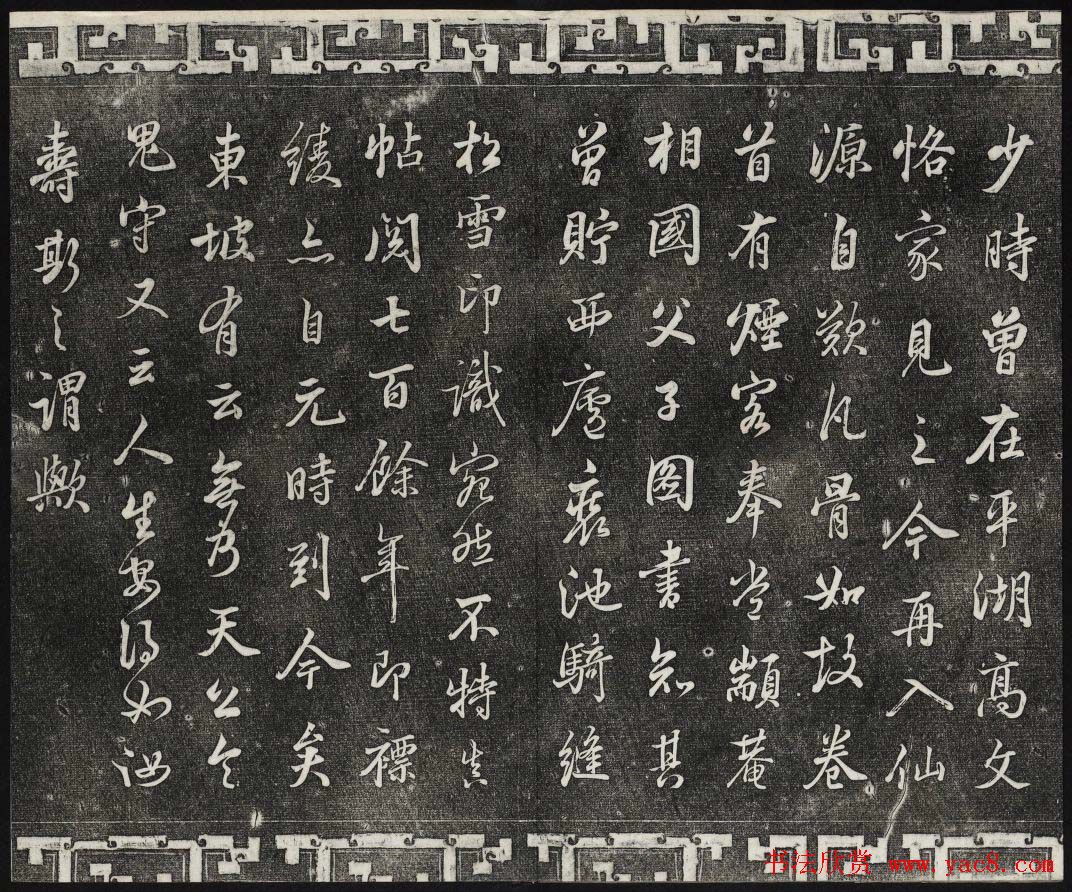 少時曾在平湖高文
恪家見之今再入仙
源自歎凡骨如故卷
首有煙客奉嘗顓菴
相國父子圖書知其
曾貯西廬裏池騎縫
松雪印識宛然不特真
帖閱七百餘年即褾
綾亦自元時到今矣
東坡有云無乃天公令
鬼守又云人生安得如汝
壽斯之謂歟
书法欣赏 www.yac8.com